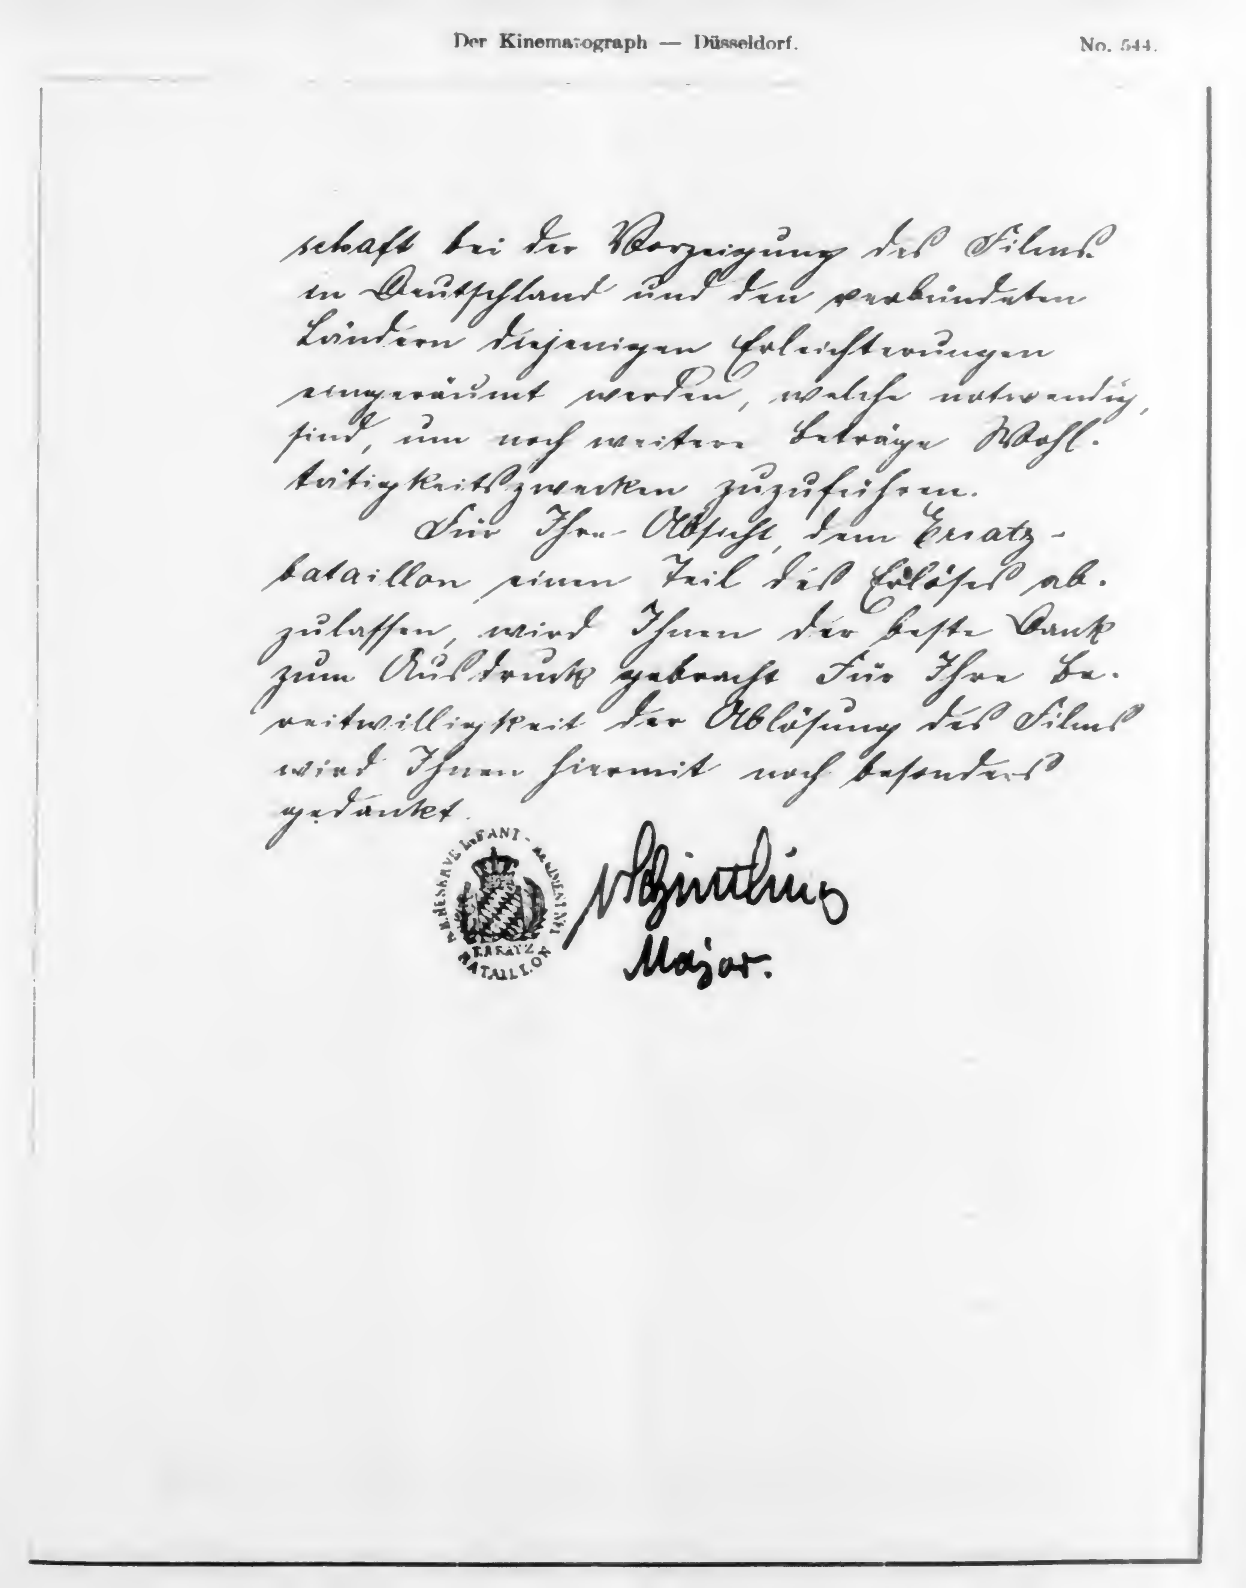 Der Kinematograph — Düsseldorf.
No. 544.
schaft bei der Vorzeigung des Films
in Deutschland und den verbündeten
Ländern diejenigen Erleichterungen
eingeräumt werden, welche notwendig
sind, um noch weitere Beträge Wohl-
tätigkeitszwecken zuzuführen.
Für Ihre Absicht, dem Ersatz-
bataillon einen Teil des Erlöses ab-
zulassen, wird Ihnen der beste Dank
zum Ausdruck gebracht Für Ihre Be-
reitwilligkeit der Ablösung des Films
wird Ihnen hiermit noch besonders
gedankt.
RESERVE INFANT-REGIMENT
ERSATZ
BATAILLON
Major.